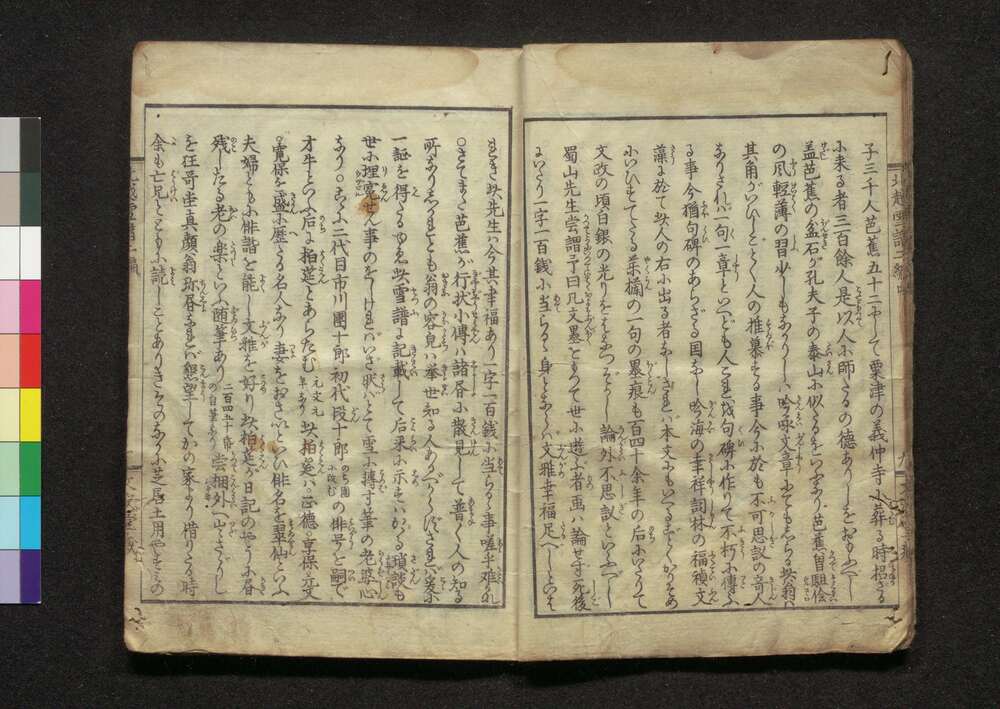 子三千人芭蕉五十二にして粟津の義仲寺に葬る時招ざる
に来る者三百餘人是以人に師たるの徳ありしをおもふべし
盖芭蕉の盆石が孔夫子の泰山に似たるをいふなり芭蕉曽駔儈
の風軽薄の習少しもなかりしは吟咏文章にてもしらる此翁は
其角がいひしごとく人の推慕する事今に於も不可思議の奇人
なりされば一句一章といへども人これを句碑に作りて不朽に傳ふ
る事今猶句碑のあらざる国なし吟海の幸祥詞林の福禎文
藻に於て此人の右に出る者なしされば本文にもいへるごとくかりそめ
にいひすてたる薬欄の一句の墨痕も百四十余年の后にいたりて
文政の頃白銀の光りをはなつぞかし論外不思議といふべし
蜀山先生嘗謂予曰凡文墨をもつて世に遊ぶ者画は論せず死後
にいたり一字一百銭に当らるゝ身とならば文雅幸福足べしといは
れき此先生は今其幸福あり一字一百銭に当らるゝ事嗟乎難れ
○さてまた芭蕉が行状小傳は諸書に散見して普く人の知る
所なりしかれども翁の容㒵は挙世知る人あるべからずされば爰に
一證を得たるゆゑ此雪譜に記載して后来に示すはかゝる瑣談も
世に埋冤せん事のをしければいざ然ばとて雪に搏す筆の老婆心
なり○こゝに二代目市川團十郎初代段十郎のち團に改むの俳号を嗣で
才牛といふ后に柏莚とあらたむ元文元年なり此柏莚は正徳享保元文
寛保を盛に歴たる名人なり妻をおさいといひ俳名を翠仙といふ
夫婦ともに俳諧を能し文雅を好り此柏莚が日記のやうに書
残したる老の楽といふ随筆あり二百四五十帋の自筆なり嘗相外山とざし
を狂哥堂真顔翁珎書なれば懇望してかの家より借りたる時
余も亡兄とともに読しことありきそのなかに芝居土用やすみの